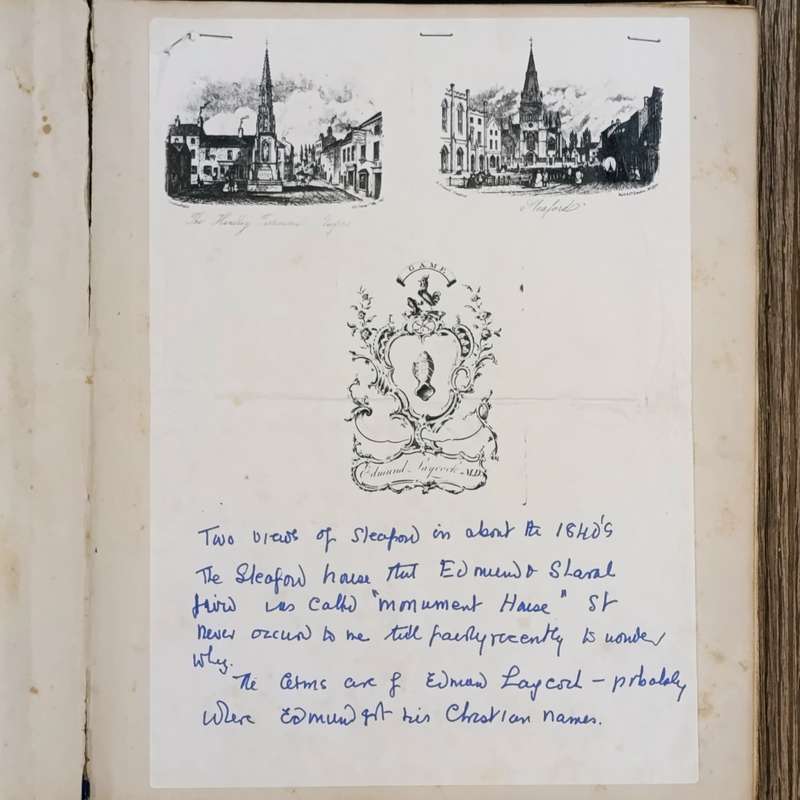 The Handley
Sleaford
GAME
Edmund Laycock M.D.
Two views of Sleaford in about the 1840's
The Sleaford house that Edmund & Sarah
lived was called "Monument House" It
never occurred to me till fairly recently to wonder
why.
The arms are of Edmund Laycock – probably
where Edmund got his Christian names.